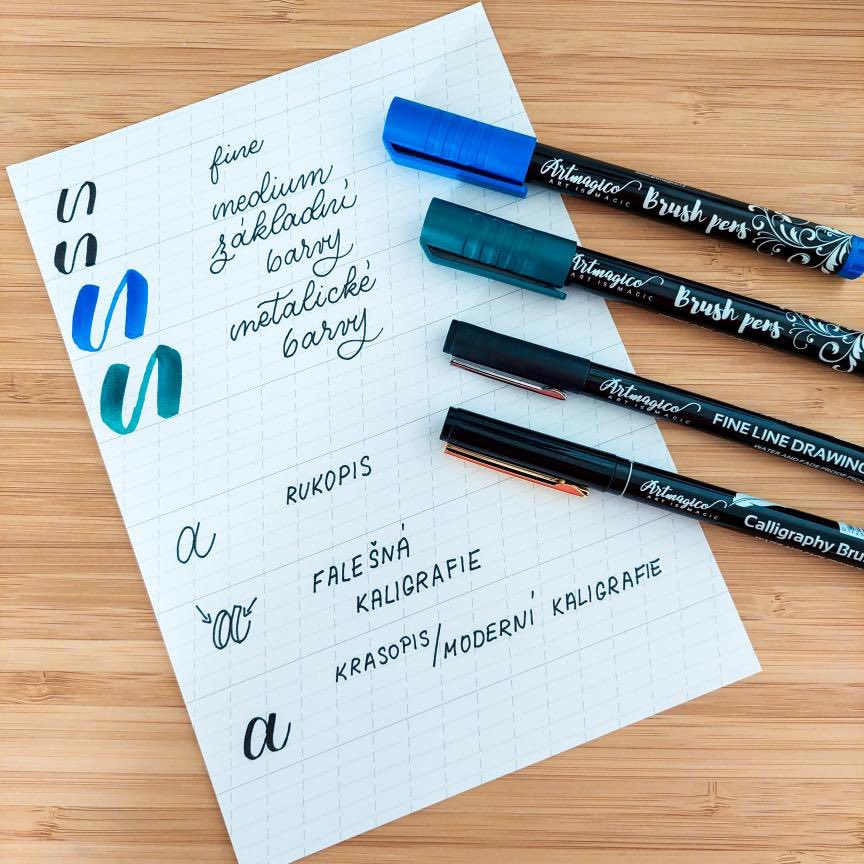 fine
medium
základní
barvy
metalické
barvy
S
S
S
S
RUKOPIS
a
FALEŠNÁ
KALIGRAFIE
a
KRASOPIS/MODERNÍ KALIGRAFIE
a
Artmagico
ART IS MAGIC
Brush pens
Artmagico
ART IS MAGIC
Brush pens
Artmagico
ART IS MAGIC
FINE LINE DRAWING
WATER AND FADE PROOF
Artmagico
ART IS MAGIC
Calligraphy Bru